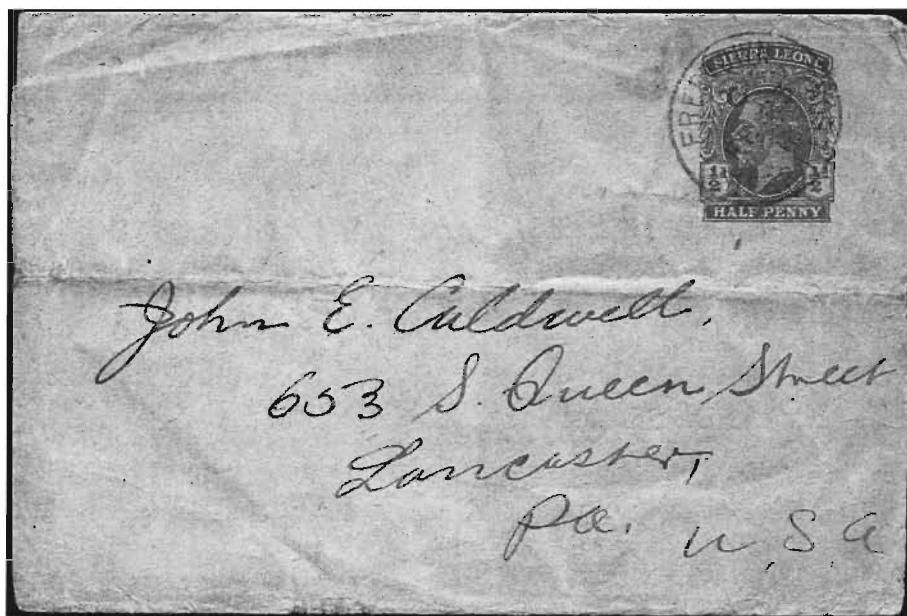 SIERRA LEONE
½ ½
HALF PENNY
John E. Caldwell,
653 S. Queen Street
Lancaster,
Pa. U.S.A